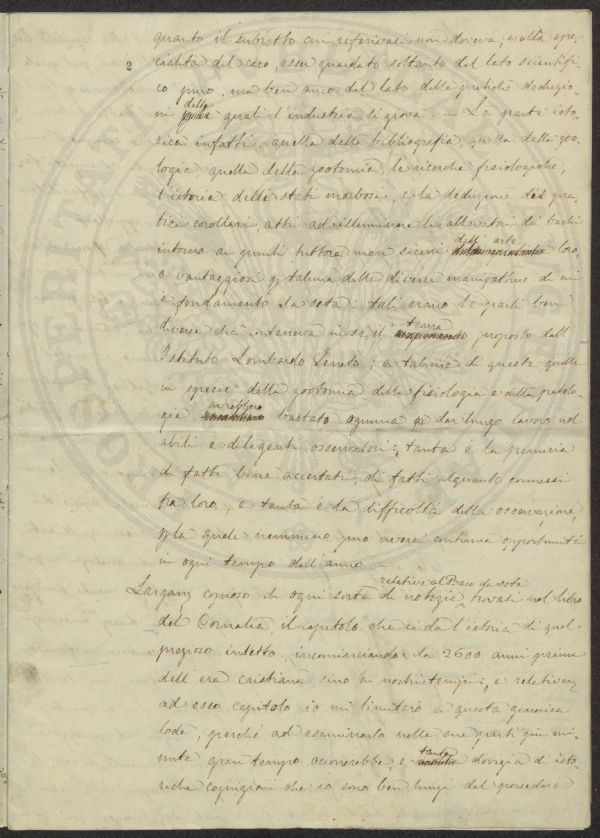 quanto il subietto cui riferivasi non doveva, nella spe-
2
cialità del caso, esser guardato soltanto dal lato scientifi-
co puro, ma ben anco dal lato delle pratiche deduzio-
delle
ni quali l'industria si giova. — La parte isto-
rica infatti, quella della bibliografia, quella della zoo-
logia quella della zootomia, le ricerche fisiologiche,
l'istoria delli stati morbosi, e la deduzione dei pra-
tici corollari, atti ad illuminare li allevatori di bachi
dell' arte
intorno ai punti tuttora men sicuri loro,
e vantaggiosi p talune delle diverse manifatture di cui
è fondamento la seta: tali erano le parti ben
tema
diverse che conteneva in se il proposto dall'
Istituto Lombardo Veneto; e talune di queste quelle
in specie della zootomia della fisiologia e della patolo-
avrebbero
gia bastato ognuna p dar lungo lavoro ad
abili e diligenti osservatori; tanta è la penuria
di fatti bene accertati, di fatti alquanto connessi
fra loro, e tanta è la difficoltà della osservazione,
p la quale nemmeno può aversi continua opportunità
in ogni tempo dell'anno —
relative al Baco da seta
copioso di ogni sorta di notizie trovasi nel libro
del Cornalia, il capitolo che ci dà l'istoria di quel
prezioso insetto, incominciando da 2600 anni prima
dell'era cristiana, sino ai nostri tempi; e relativam
ad esso capitolo io mi limiterò a questa generica
lode, perché ad esaminarlo nelle sue parti più mi-
tanta
nute gran tempo occorrerebbe, e dovizia di isto-
riche cognizioni che io sono ben lungi dal possedere